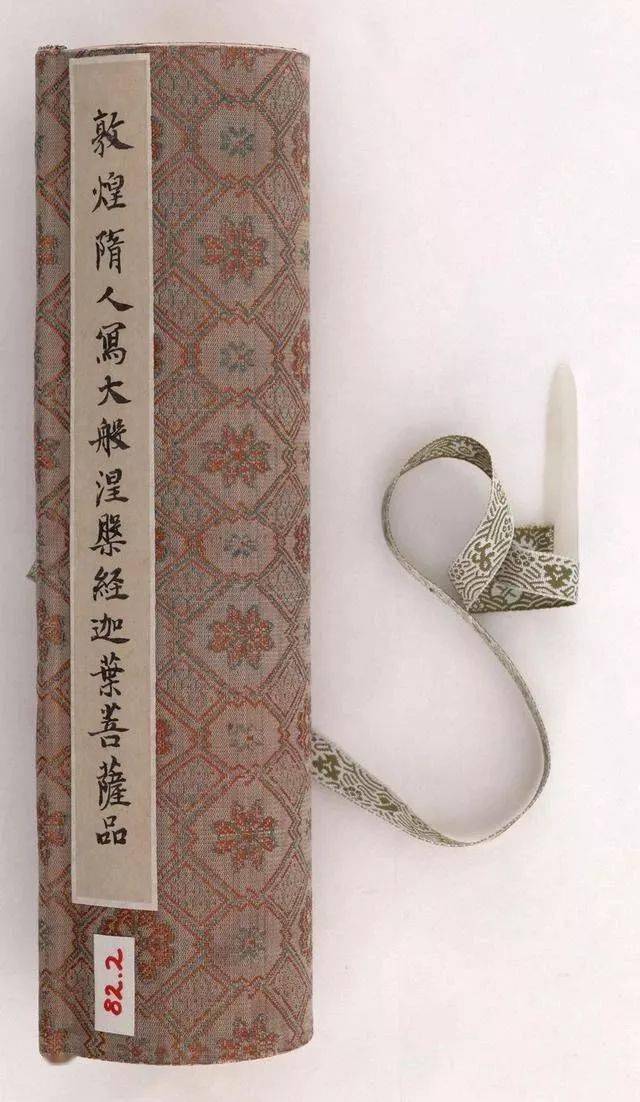 敦煌隋人寫大般涅槃経迦葉菩薩品
82.2